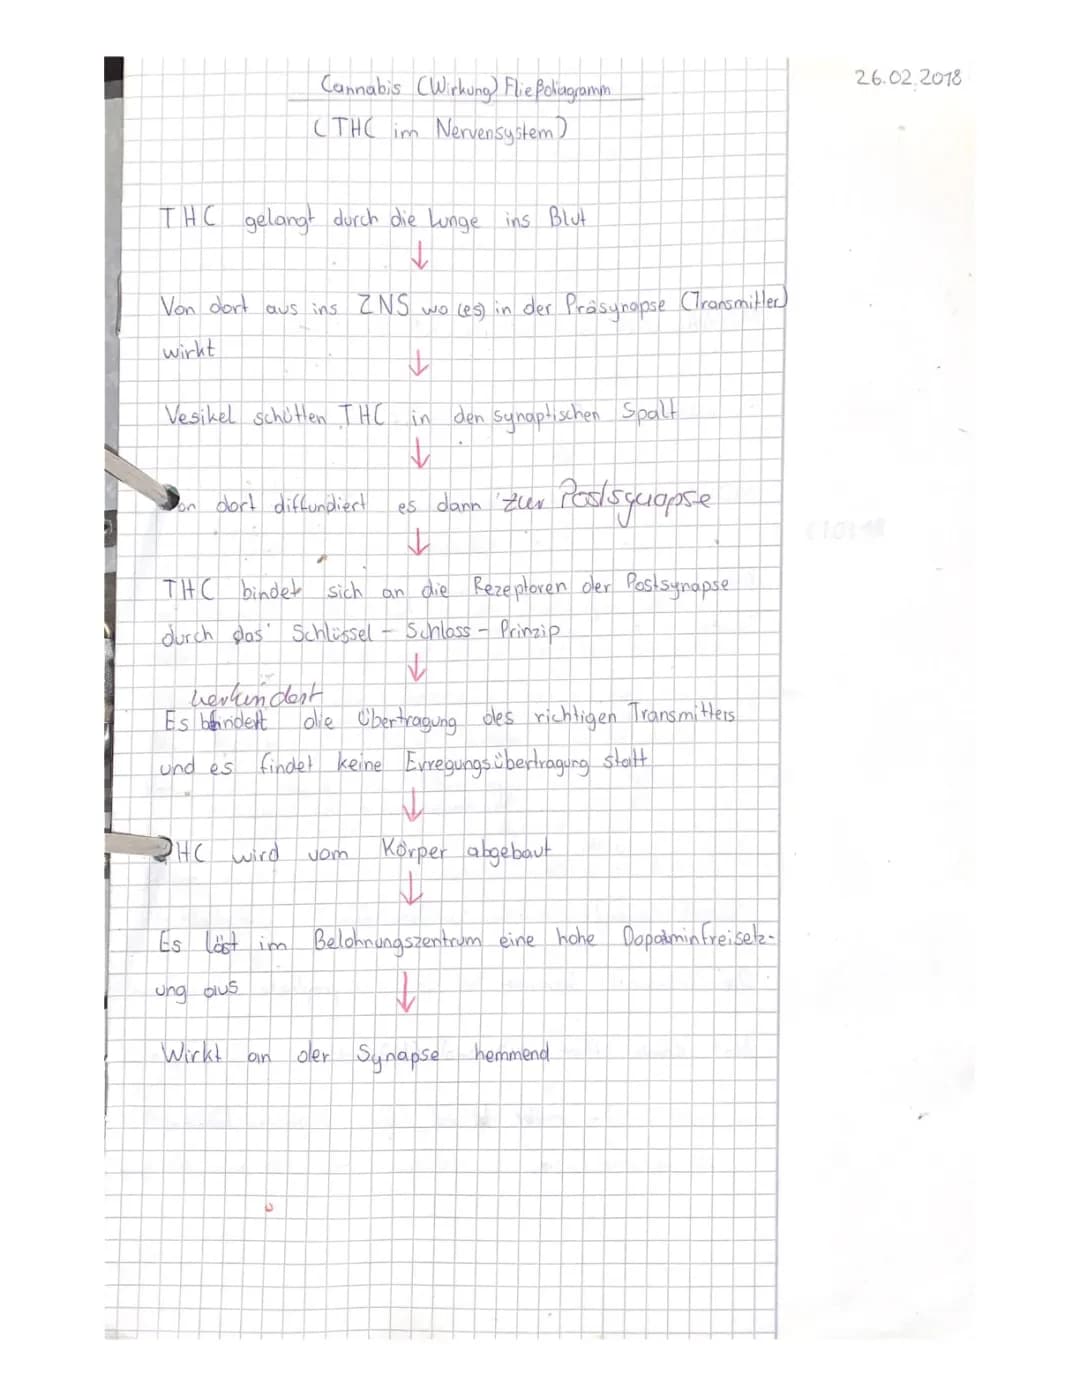 26.02.2018
Cannabis (Wirkung) Fließdiagramm
(THC im Nervensystem)
THC gelangt durch die Lunge ins Blut
↓
Von dort aus ins ZNS wo (es) in der Präsynapse (Transmitter)
wirkt
↓
Vesikel schütten THC in den synaptischen Spalt
↓
Von dort diffundiert es dann zur Postsynapse
↓
THC bindet sich an die Rezeptoren der Postsynapse
durch das Schlüssel - Schloss - Prinzip
↓
verhindert
Es behindert die Übertragung des richtigen Transmitters
und es findet keine Erregungsübertragung statt
↓
THC wird vom Körper abgebaut
↓
Es löst im Belohnungszentrum eine hohe Dopaminfreisetz-
ung aus
↓
Wirkt an der Synapse hemmend